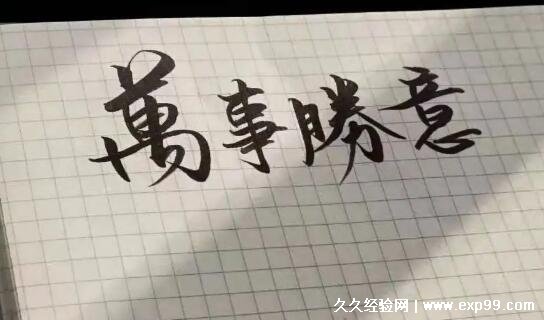 萬事勝意
久久经验网 | www.exp99.com